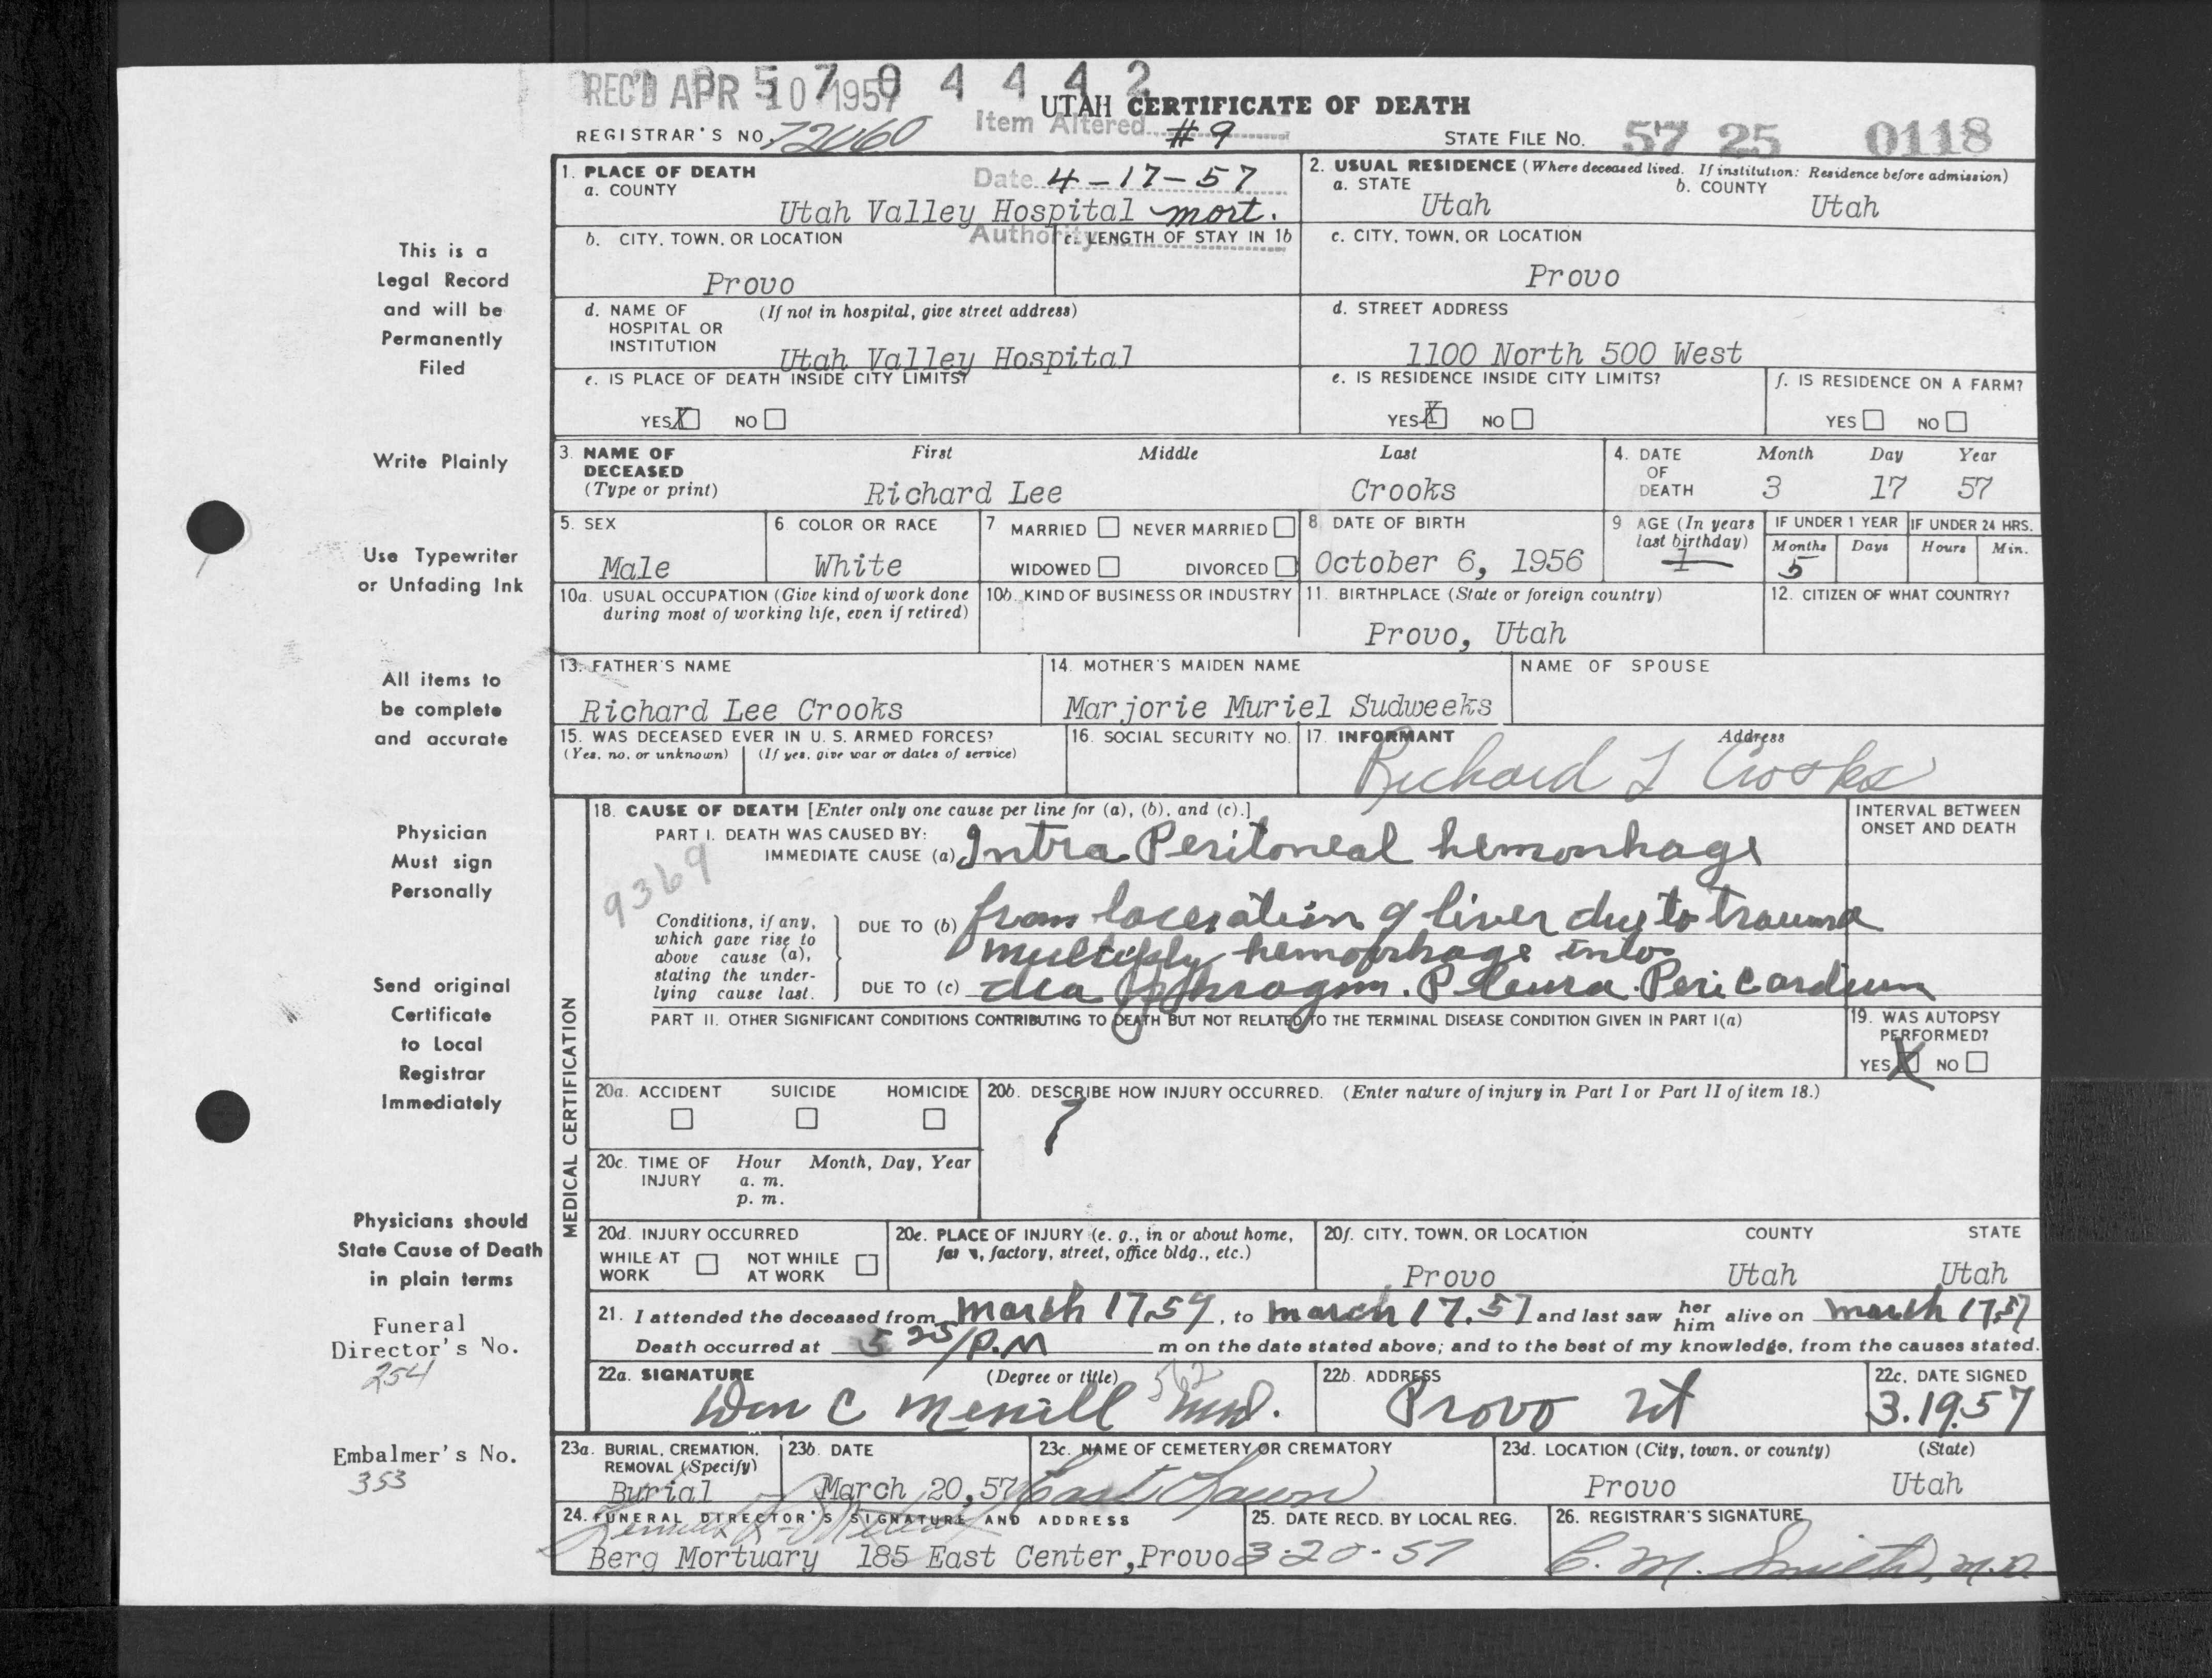 REC'D APR 10 1957
5 7 0 4 4 4 2
UTAH CERTIFICATE OF DEATH
Item Altered #9
REGISTRAR'S NO.
STATE FILE NO. 57 25 0118
1. PLACE OF DEATH
a. COUNTY
Date 4-17-57
Utah Valley Hospital mort.
Authority
2. USUAL RESIDENCE (Where deceased lived. If institution: Residence before admission)
a. STATE b. COUNTY
Utah Utah
b. CITY, TOWN, OR LOCATION
Provo
c. LENGTH OF STAY IN 1b
c. CITY, TOWN, OR LOCATION
Provo
d. NAME OF HOSPITAL OR INSTITUTION (If not in hospital, give street address)
Utah Valley Hospital
d. STREET ADDRESS
1100 North 500 West
e. IS PLACE OF DEATH INSIDE CITY LIMITS?
YES X NO
e. IS RESIDENCE INSIDE CITY LIMITS?
YES X NO
f. IS RESIDENCE ON A FARM?
YES NO
3. NAME OF DECEASED (Type or print)
First Middle Last
Richard Lee Crooks
4. DATE OF DEATH
Month Day Year
3 17 57
5. SEX
Male
6 COLOR OR RACE
White
7 MARRIED NEVER MARRIED
WIDOWED DIVORCED
8 DATE OF BIRTH
October 6, 1956
9 AGE (In years last birthday)
1
IF UNDER 1 YEAR IF UNDER 24 HRS.
Months Days Hours Min.
5
10a. USUAL OCCUPATION (Give kind of work done during most of working life, even if retired)
10b. KIND OF BUSINESS OR INDUSTRY
11. BIRTHPLACE (State or foreign country)
Provo, Utah
12. CITIZEN OF WHAT COUNTRY?
13. FATHER'S NAME
Richard Lee Crooks
14. MOTHER'S MAIDEN NAME
Marjorie Muriel Sudweeks
NAME OF SPOUSE
15. WAS DECEASED EVER IN U. S. ARMED FORCES?
(Yes, no, or unknown) (If yes, give war or dates of service)
16. SOCIAL SECURITY NO.
17. INFORMANT Address
Richard L Crooks
MEDICAL CERTIFICATION
18. CAUSE OF DEATH [Enter only one cause per line for (a), (b), and (c).]
INTERVAL BETWEEN ONSET AND DEATH
PART I. DEATH WAS CAUSED BY:
IMMEDIATE CAUSE (a) Intra Peritoneal hemorrhage
9369
Conditions, if any, which gave rise to above cause (a), stating the underlying cause last.
DUE TO (b) from laceration of liver due to trauma
multiply hemorrhage into
DUE TO (c) diaphragm. Pleura. Pericardium
PART II. OTHER SIGNIFICANT CONDITIONS CONTRIBUTING TO DEATH BUT NOT RELATED TO THE TERMINAL DISEASE CONDITION GIVEN IN PART I(a)
19. WAS AUTOPSY PERFORMED?
YES X NO
20a. ACCIDENT SUICIDE HOMICIDE
20b. DESCRIBE HOW INJURY OCCURRED. (Enter nature of injury in Part I or Part II of item 18.)
20c. TIME OF INJURY Hour Month, Day, Year
a. m.
p. m.
20d. INJURY OCCURRED
WHILE AT WORK NOT WHILE AT WORK
20e. PLACE OF INJURY (e. g., in or about home, farm, factory, street, office bldg., etc.)
20f. CITY, TOWN, OR LOCATION COUNTY STATE
Provo Utah Utah
21. I attended the deceased from March 17, 57, to march 17. 57 and last saw her him alive on march 17, 57
Death occurred at 5 25/P.M m on the date stated above; and to the best of my knowledge, from the causes stated.
22a. SIGNATURE (Degree or title)
562
Wm C Merrill M.D.
22b. ADDRESS
Provo Ut
22c. DATE SIGNED
3.19.57
23a. BURIAL, CREMATION, REMOVAL (Specify)
Burial
23b. DATE
March 20, 57
23c. NAME OF CEMETERY OR CREMATORY
East Lawn
23d. LOCATION (City, town, or county) (State)
Provo Utah
24. FUNERAL DIRECTOR'S SIGNATURE AND ADDRESS
Berg Mortuary 185 East Center, Provo
25. DATE RECD. BY LOCAL REG.
3-20-57
26. REGISTRAR'S SIGNATURE
C. M. Smith, M.D.
This is a
Legal Record
and will be
Permanently
Filed
Write Plainly
Use Typewriter
or Unfading Ink
All items to
be complete
and accurate
Physician
Must sign
Personally
Send original
Certificate
to Local
Registrar
Immediately
Physicians should
State Cause of Death
in plain terms
Funeral
Director's No.
254
Embalmer's No.
353